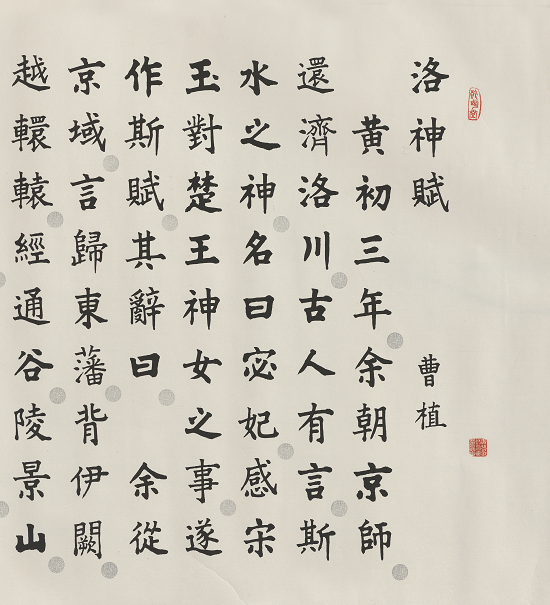 洛神賦 曹植
黃初三年余朝京師
還濟洛川古人有言斯
水之神名曰宓妃感宋
玉對楚王神女之事遂
作斯賦其辭曰 余從
京域言歸東藩背伊闕
越轘轅經通谷陵景山